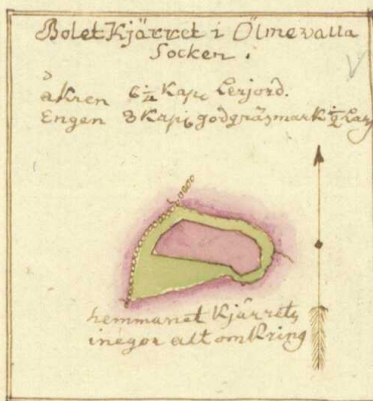 Bolet Kjärret i Ölmevalla
Socken.
åkren 6 1/4 Kap: Lerjord.
Engen 8 Kap: god gräsmark 1/2 Las
hemmanet Kjärrets
inegor alt omkring